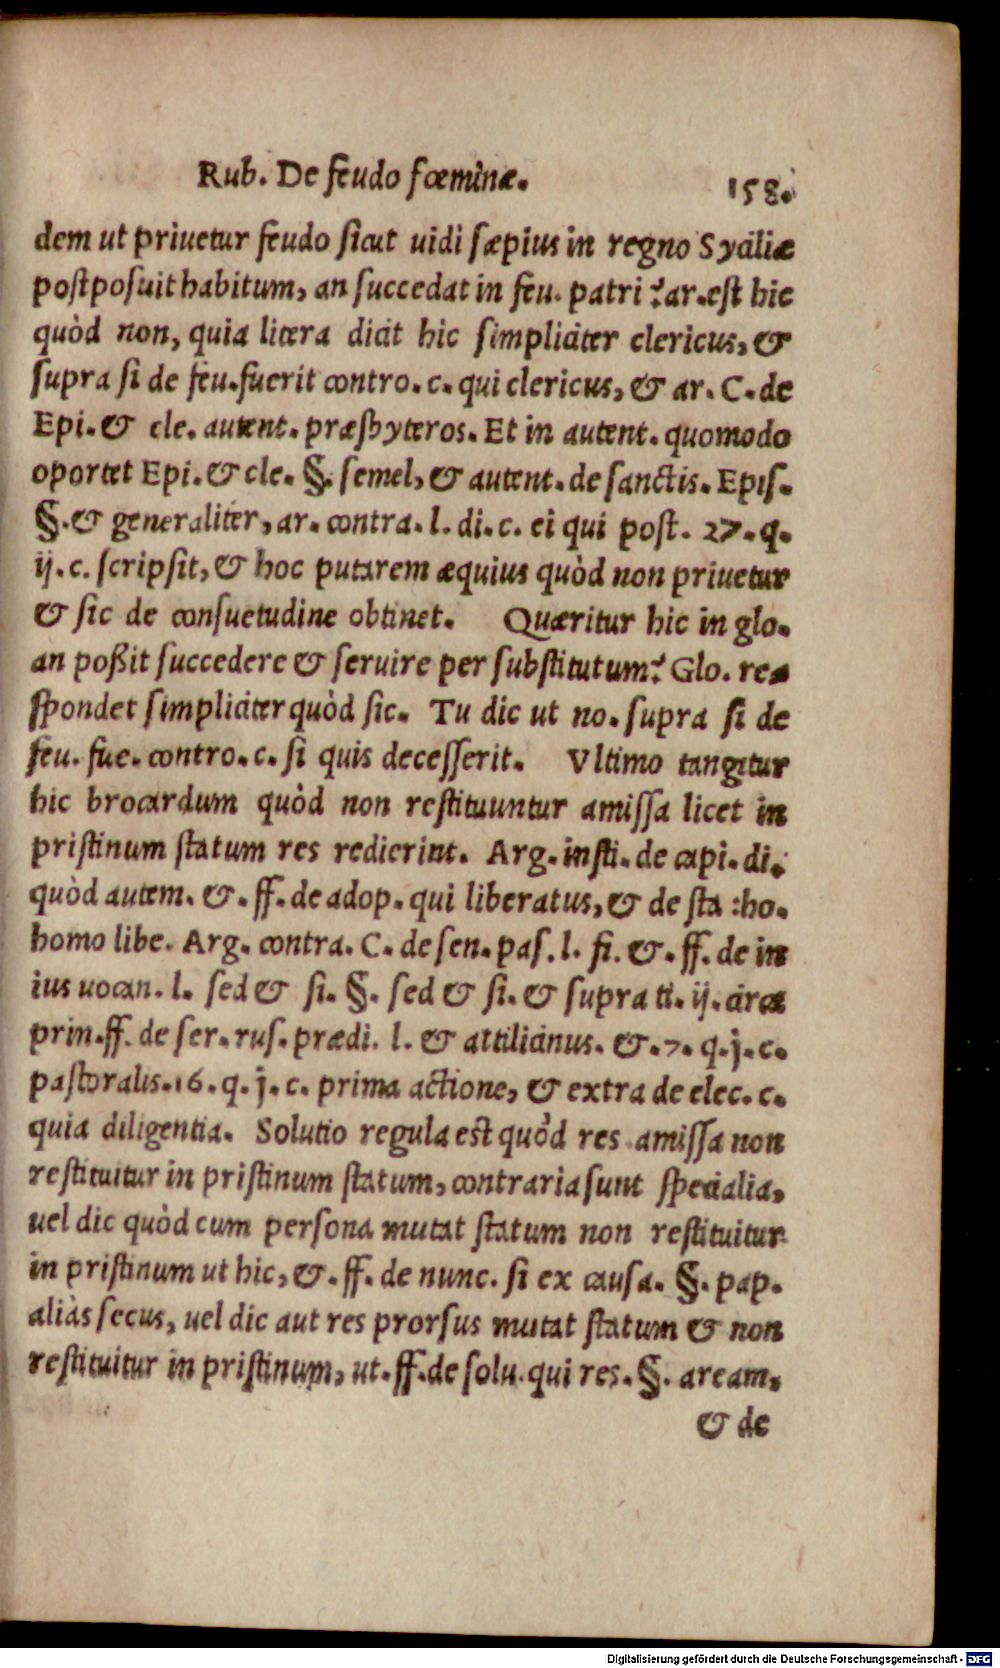 Rub. De feudo fœminæ.
158.
dem ut priuetur feudo sicut uidi sæpius in regno Syciliæ
postposuit habitum, an succedat in feu. patri? ar. est hic
quòd non, quia litera dicit hic simpliciter clericus, &
supra si de feu. fuerit contro. c. qui clericus, & ar. C. de
Epi. & cle. autent. præsbyteros. Et in autent. quomodo
oportet Epi. & cle. §. semel, & autent. de sanctis. Epis.
§. & generaliter, ar. contra. l. di. c. ei qui post. 27. q.
ij. c. scripsit, & hoc putarem æquius quòd non priuetur
& sic de consuetudine obtinet. Quæritur hic in glo.
an poßit succedere & seruire per substitutum? Glo. re-
spondet simpliciter quòd sic. Tu dic ut no. supra si de
feu. fue. contro. c. si quis decesserit. Vltimo tangitur
hic brocardum quòd non restituuntur amissa licet in
pristinum statum res redierint. Arg. insti. de capi. di.
quòd autem. &. ff. de adop. qui liberatus, & de sta :ho.
homo libe. Arg. contra. C. de sen. pas. l. fi. &. ff. de in
ius uocan. l. sed & si. §. sed & si. & supra ti. ij. circa
prin. ff. de ser. rus. prædi. l. & attilicinus. &. 7. q. j. c.
pastoralis. 16. q. j. c. prima actione, & extra de elec. c.
quia diligentia. Solutio regula est quòd res amissa non
restituitur in pristinum statum, contraria sunt specialia,
uel dic quòd cum persona mutat statum non restituitur
in pristinum ut hic, &. ff. de nunc. si ex causa. §. pap.
aliàs secus, uel dic aut res prorsus mutat statum & non
restituitur in pristinum, ut. ff. de solu. qui res. §. aream.
& de
Digitalisierung gefördert durch die Deutsche Forschungsgemeinschaft - DFG